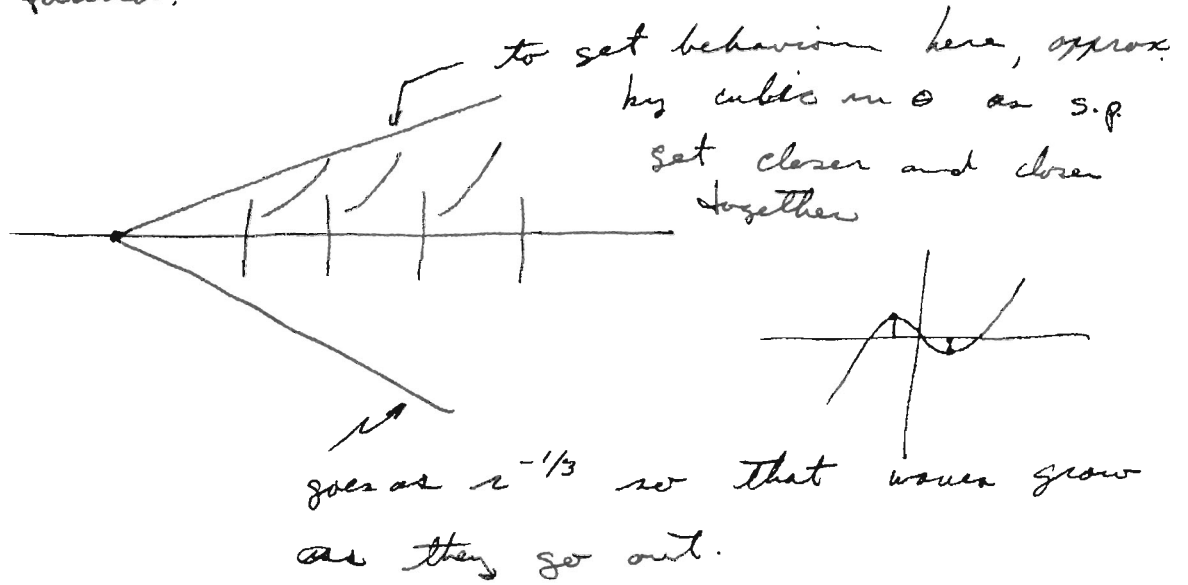 to get behavior here, approx.
by cubic in θ as s.p.
get closer and closer
together
goes as r^-1/3 so that waves grow
as they go out.